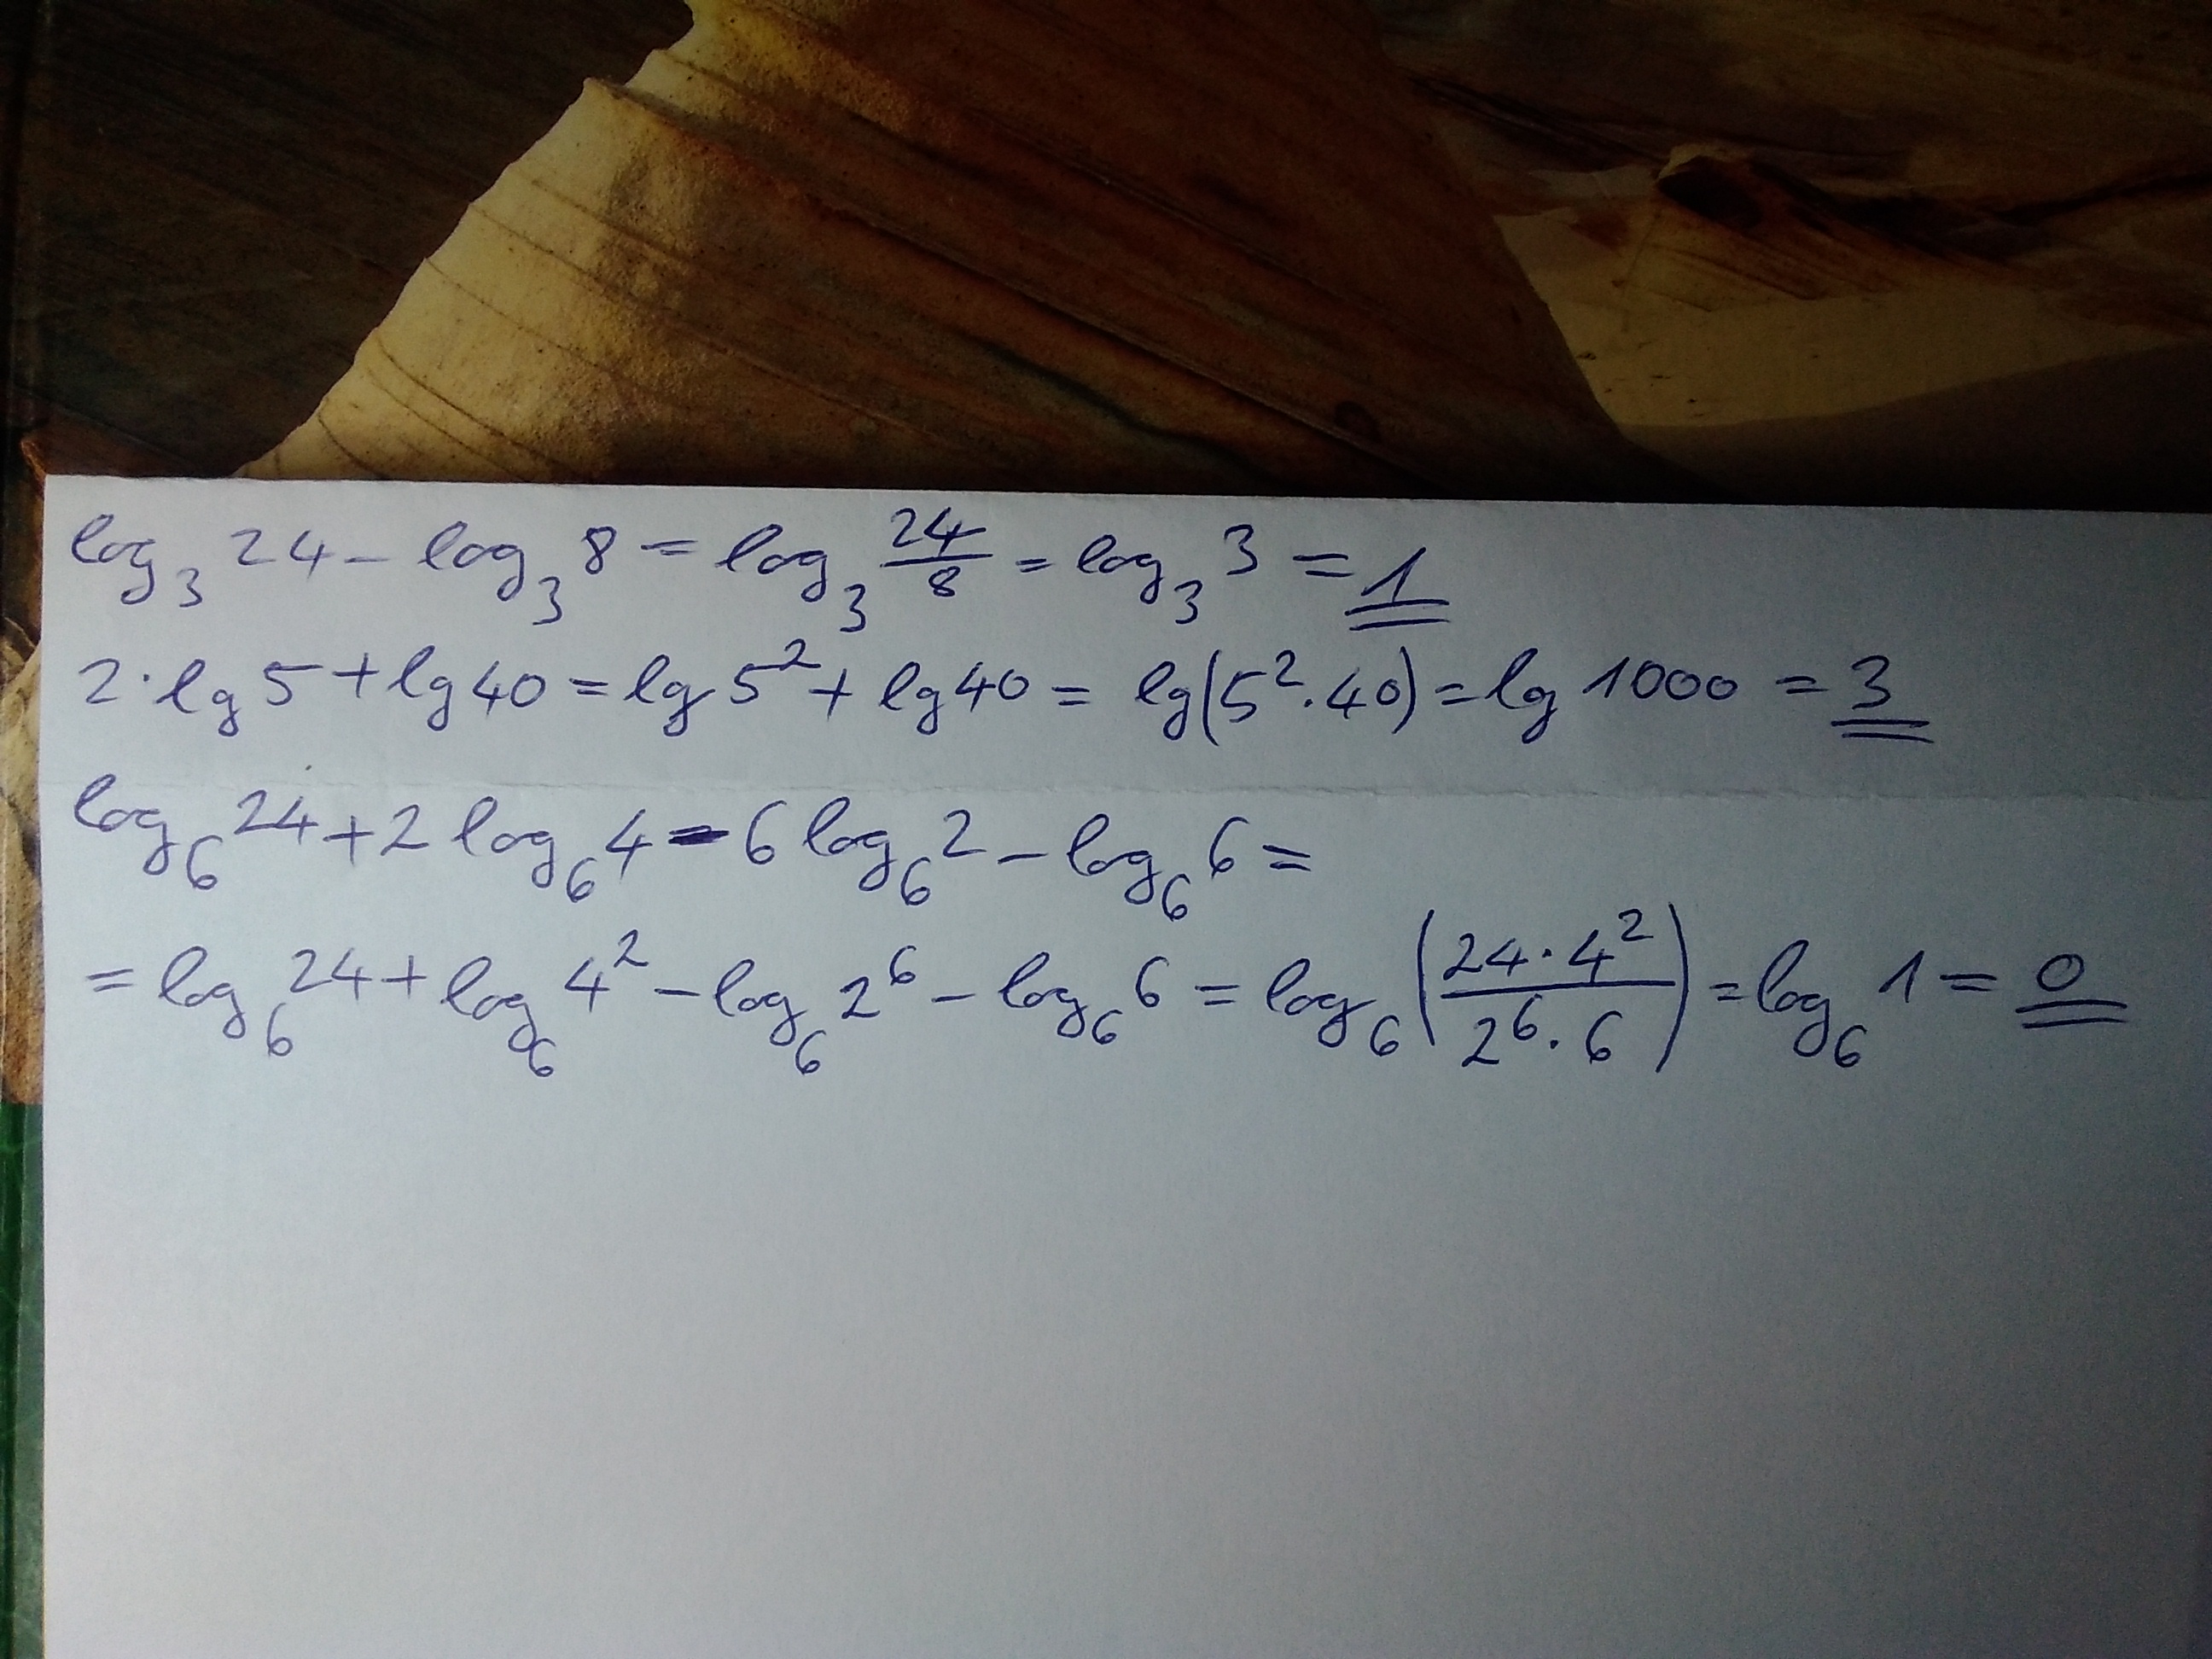 log₃ 24 - log₃ 8 = log₃ 24/8 = log₃ 3 = 1
2 · lg 5 + lg 40 = lg 5² + lg 40 = lg(5² · 40) = lg 1000 = 3
log₆ 24 + 2 log₆ 4 - 6 log₆ 2 - log₆ 6 =
= log₆ 24 + log₆ 4² - log₆ 2⁶ - log₆ 6 = log₆ (24 · 4² / 2⁶ · 6) = log₆ 1 = 0